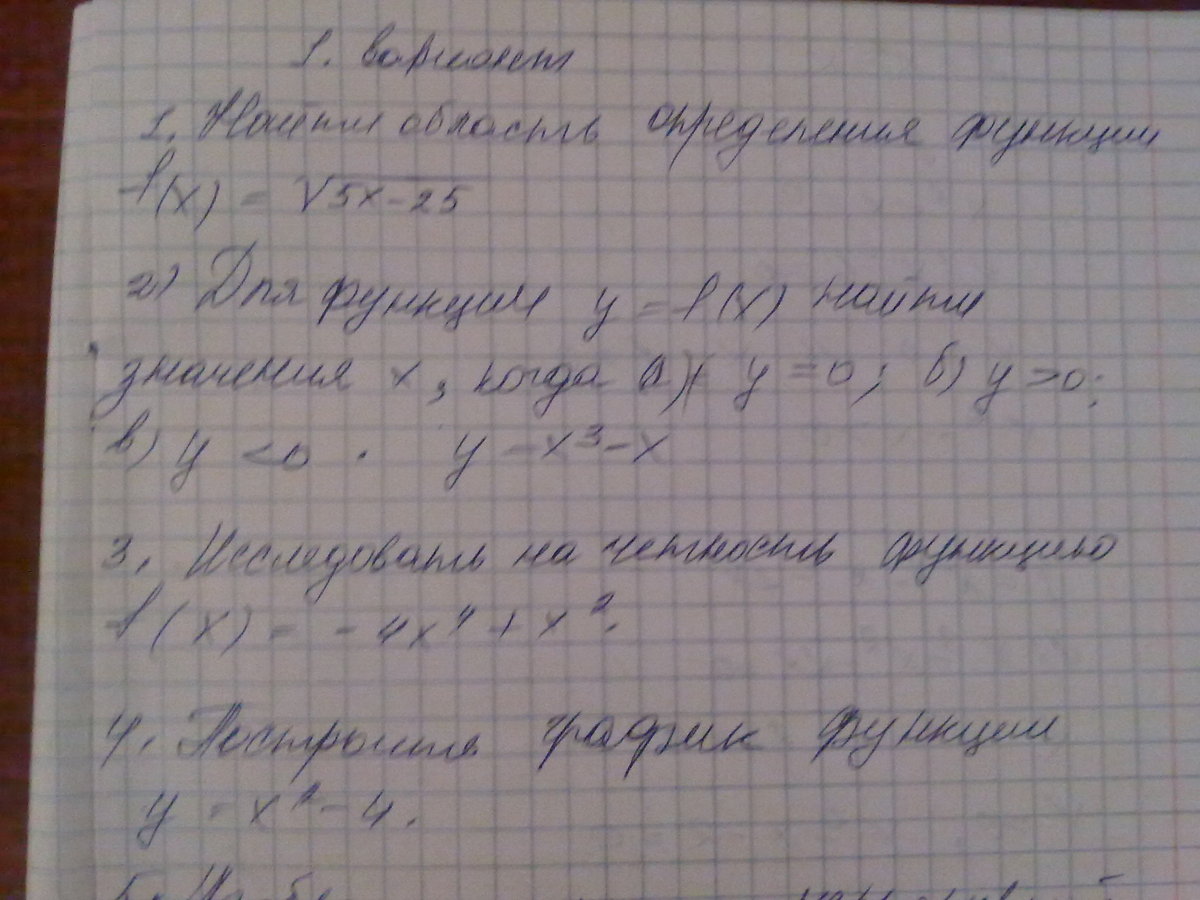 1. вариант
1. Найти область определения функции
f(x) = √5x-25
2) Для функции y = f(x) найти
значения x, когда а) y = 0; б) y > 0;
в) y < 0 . y = x³-x
3. Исследовать на четность функцию
f(x) = -4x⁴ + x².
4. Построить график функции
y = x² - 4.